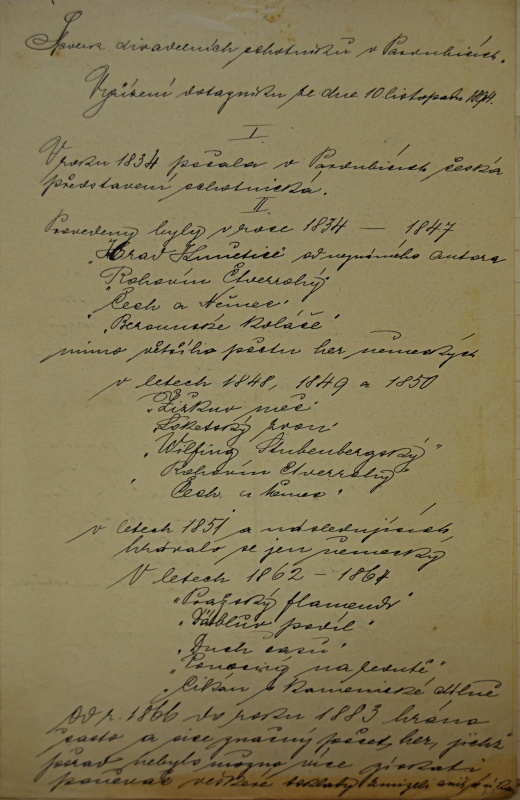 Spolek divadelních ochotníků v Pardubicích.
Vyřízení dotazníku ze dne 10 listopadu
I.
V roku 1834 počala v Pardubicích česká
představení ochotnická.
II.
Provedeny byly v roce 1834 — 1847
„Hrad Kunětice" od neznámého autora
„Rohovín Čtverrohý"
„Čech a Němec"
„Berounské koláče"
mimo většího počtu her německých
v letech 1848, 1849 a 1850
„Žižkův meč"
„Loketský zvon"
„Wilfing Stubenbergský"
„Rohovín Čtverrohý"
„Čech a Němec"
v letech 1851 a následujících
hrávalo se jen německy
V letech 1862 – 1864
„Pražský flamendr"
„Ďáblův podíl"
„Duch času"
na ledvě"
„Cikán
Od r. 1866 do roku 1883 hráno
často a sice značný počet her, jichž
pořad nebylo možno více získati
poněvač veškeré doklady